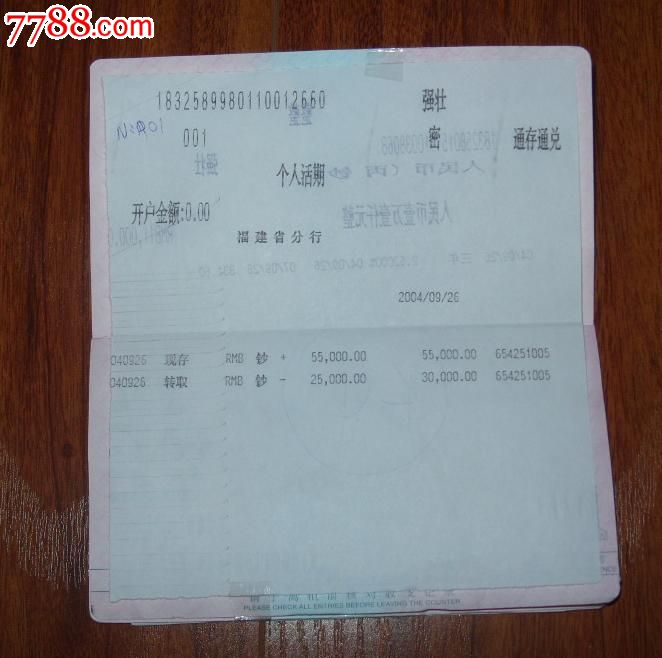 7788.com
1832589980110012660 强壮
001 密 通存通兑
个人活期
开户金额:0.00
福建省分行
2004/09/26
040926 现存 RMB 钞 + 55,000.00 55,000.00 654251005
040926 转取 RMB 钞 - 25,000.00 30,000.00 654251005
PLEASE CHECK ALL ENTRIES BEFORE LEAVING THE COUNTER